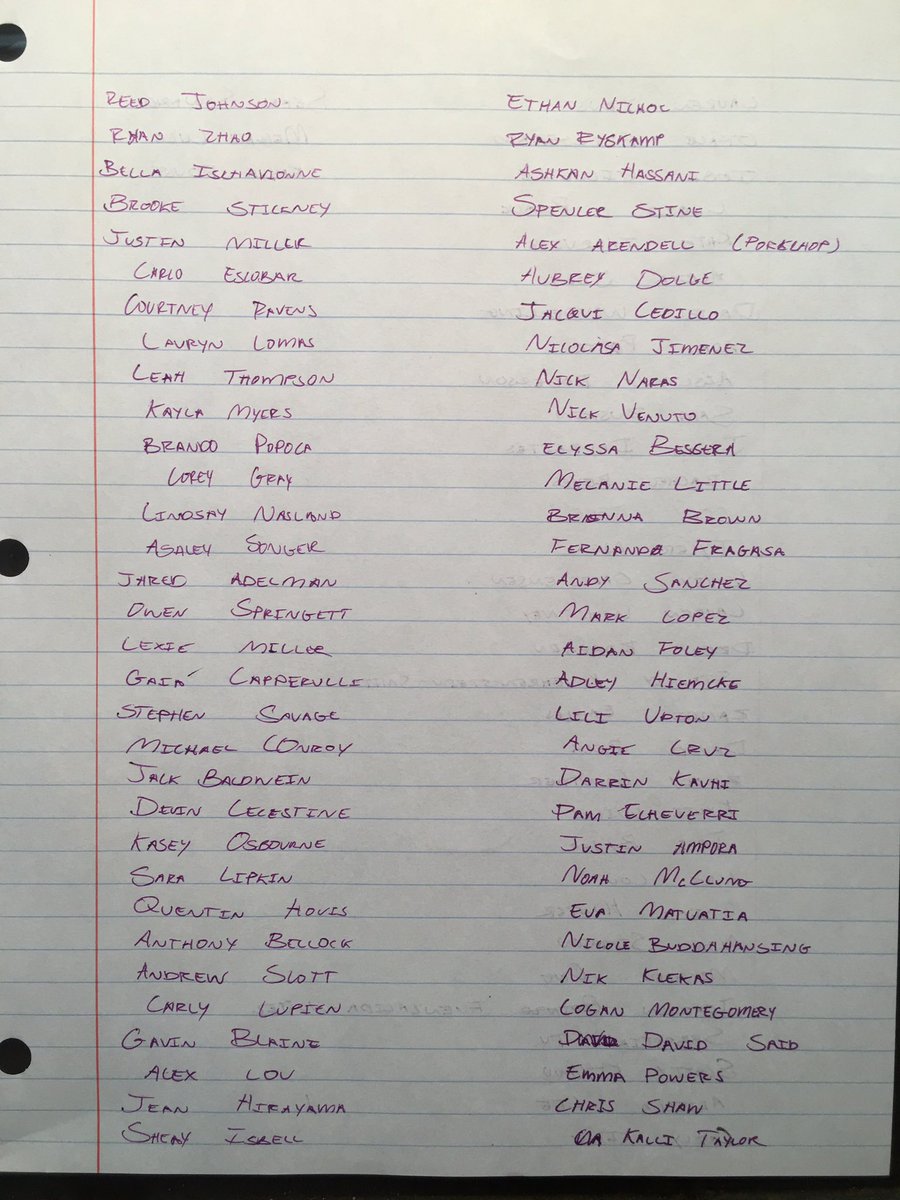 REED JOHNSON
RYAN ZHAO
BELLA ISCHAVIONNE
BROOKE STICKNEY
JUSTIN MILLER
CARLO ESCOBAR
COURTNEY RAVENS
LAURYN LOMAS
LEAH THOMPSON
KAYLA MYERS
BRANDO POPOCA
COREY GRAY
LINDSAY NASLAND
ASHLEY SONGER
JARED ADELMAN
OWEN SPRINGETT
LEXIE MILLER
GAIA CAPPERULLI
STEPHEN SAVAGE
MICHAEL CONROY
JACK BALDWEIN
DEVIN CELESTINE
KASEY OSBOURNE
SARA LIPKIN
QUENTIN HOVIS
ANTHONY BELLOCK
ANDREW SLOTT
CARLY LUPIEN
GAVIN BLAINE
ALEX LOU
JEAN HIRAYAMA
SHEAY ISBELL
ETHAN NICHOL
RYAN RYSKAMP
ASHKAN HASSANI
SPENCER STINE
ALEX ARENDELL (PORKCHOP)
AUBREY DOLGE
JACQUI CEDILLO
NICOLASA JIMENEZ
NICK NARAS
NICK VENUTO
ELYSSA BESSERA
MELANIE LITTLE
BRIENNA BROWN
FERNANDO FRAGASA
ANDY SANCHEZ
MARK LOPEZ
AIDAN FOLEY
ADLEY HIEMCKE
LILI UPTON
ANGIE CRUZ
DARRIN KAUHI
PAM ECHEVERRI
JUSTIN AMPORA
NOAH McCLUNG
EVA MATUATIA
NICOLE BUDDAHANSING
NIK KLEKAS
LOGAN MONTEGOMERY
DAVID SAID
EMMA POWERS
CHRIS SHAW
KALLI TAYLOR